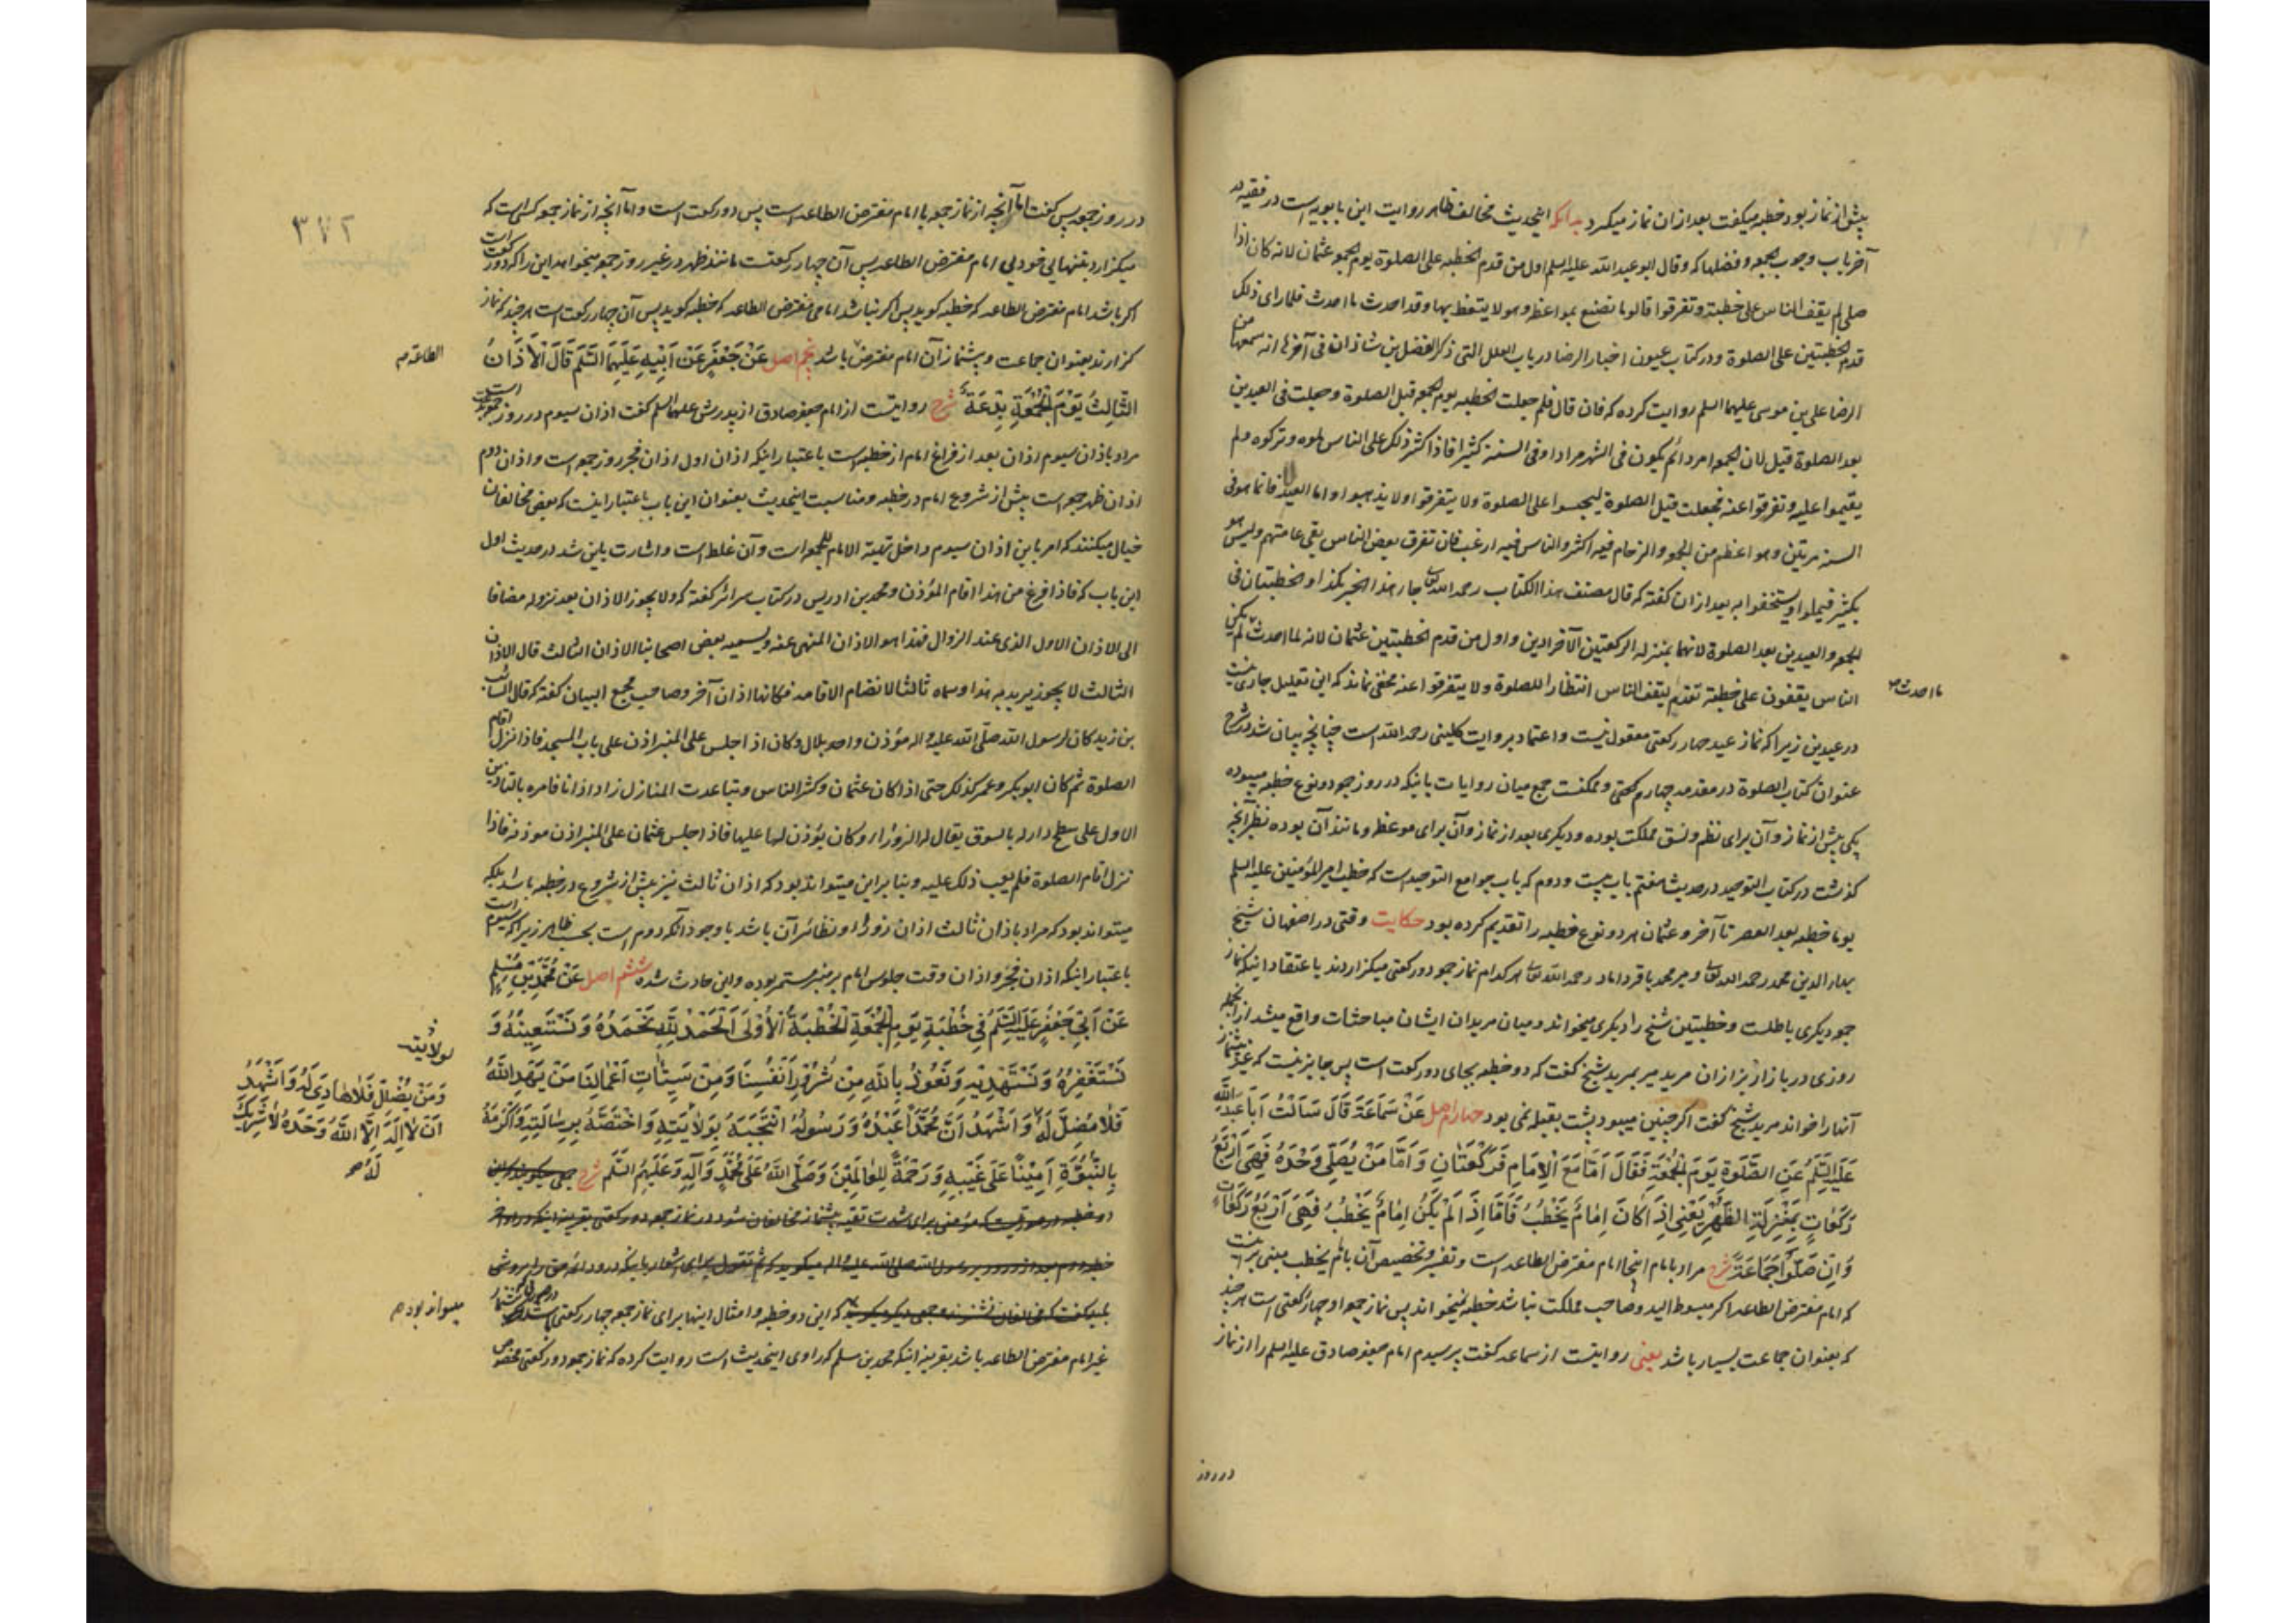 پیش از نماز بود خطبه میگفت بعد از ان نماز میکرد بدانکه اینحدیث مخالف ظاهر روایت ابن بابویه است در فقیه در
آخر باب وجوب الجمعه وفضلها که وقال ابو عبد الله علیه السلم اول من قدم الخطبه علی الصلوة یوم الجمعه عثمان لانه کان اذا
صلی لم یقف الناس علی خطبته وتفرقوا وقالوا ما نصنع بمواعظه وهو لا یتعظ بها وقد احدث ما احدث فلما رای ذلک
قدم الخطبتین علی الصلوة ودر کتاب عیون اخبار الرضا در باب العلل التی ذکر الفضل بن شاذان فی آخرها انه سمعها من
الرضا علی بن موسی علیهما السلم روایت کرده که فان قال فلم جعلت الخطبه یوم الجمعه قبل الصلوة وجعلت فی العیدین
بعد الصلوة قیل لان الجمعه امر دائم یکون فی الشهر مرارا وفی السنة کثیرا فاذا کثر ذلک علی الناس ملوه وترکوه ولم
یقیموا علیه وتفرقوا عنه فجعلت قبل الصلوة لیحبسوا علی الصلوة ولا یتفرقوا ولا یذهبوا واما العیدان فانما هو فی
السنة مرتین وهو اعظم من الجمعه والزحام فیه اکثر والناس فیه ارغب فان تفرق بعض الناس بقی عامتهم ولیس هو
بکثیر فیملوا ویستخفوا به بعد از ان کفته که قال مصنف هذا الکتاب رحمه الله تعالی جاء هذا الخبر هکذا والخطبتان فی
الجمعه والعیدین بعد الصلوة لانهما بمنزله الرکعتین الاخراوین واول من قدم الخطبتین عثمان لانه لما احدث لم یکن
الناس یقفون علی خطبته تقدم لیقف الناس انتظارا للصلوة ولا یتفرقوا عنه مخفی نماند که این تعلیل جاری نیست
ما احدث صح
در عیدین زیرا که نماز عید چهار رکعتی معقول نیست و اعتماد بر روایت کلینی رحمه الله است چنانچه بیان شد در شرح
عنوان کتاب الصلوة در مقدمه چهارم وممکنست جمع میان روایات باینکه در روز جمعه دو نوع خطبه میبوده
یکی پیش از نماز وآن برای نظم ونسق مملکت بوده ودیگری بعد از نماز وآن برای موعظه ومانند آن بوده نظیر آنچه
کذشت در کتاب التوحید در حدیث هفتم باب بیست ودوم که باب جوامع التوحید است که خطب امیر المؤمنین علیه السلم
یوما خطبه بعد العصر تا آخر وعثمان هر دو نوع خطبه را تقدیم کرده بود حکایت وقتی در اصفهان شیخ
بهاء الدین محمد رحمه الله تعالی ومیر محمد باقر داماد رحمه الله تعالی هر کدام نماز جمعه دو رکعتی میکزاردند باعتقاد اینکه نماز
جمعه دیکری باطلست وخطبتین شیخ را دیکری میخواند ومیان مریدان ایشان مباحثات واقع میشد از آنجمله
روزی در بازار بزازان مرید میر بمرید شیخ کفت که دو خطبه بجای دو رکعت است پس جایز نیست که غیر پیشنماز
آنها را خواند مرید شیخ کفت اکر چنین میبود پشت بقبله نمی بود چهارم اصل عَنْ سَمَاعَةَ قَالَ سَأَلْتُ أَبَا عَبْدِ اللهِ
عَلَيْهِ السَّلَمُ عَنِ الصَّلَوةِ يَوْمَ الْجُمُعَةِ فَقَالَ أَمَّا مَعَ الْإِمَامِ فَرَكْعَتَانِ وَأَمَّا مَنْ يُصَلِّي وَحْدَهُ فَهِيَ أَرْبَعُ
رَكَعَاتٍ بِمَنْزِلَةِ الظُّهْرِ يَعْنِي إِذَا كَانَ إِمَامٌ يَخْطُبُ فَأَمَّا إِذَا لَمْ يَكُنْ إِمَامٌ يَخْطُبُ فَهِيَ أَرْبَعُ رَكَعَاتٍ
وَإِنْ صَلَّوْا جَمَاعَةً شرح مراد بامام اینجا امام مفترض الطاعه است وتفسیر وتخصیص آن بامام یخطب مبنی بر اینست
که امام مفترض الطاعه اکر مبسوط الید وصاحب مملکت نباشد خطبه نمیخواند پس نماز جمعه او چهار رکعتی است هر چند
که بعنوان جماعت بسیار باشد یعنی روایتست از سماعه کفت پرسیدم امام جعفر صادق علیه السلم را از نماز
در روز
۳۷۲
در روز جمعه پس کفت اما آنچه از نماز جمعه با امام مفترض الطاعه است پس دو رکعت است واما آنچه از نماز جمعه کسی است که
میکزارد بتنهایی خود بی امام مفترض الطاعه پس آن چهار رکعتست مانند ظهر در غیر روز جمعه میخواهد این را که دو رکعت است
اکر باشد امام مفترض الطاعه که خطبه کوید پس اکر نباشد امامی مفترض الطاعه که خطبه کوید پس آن چهار رکعت است هر چند که نماز
کزارند بعنوان جماعت وپیشنماز آن امام مفترض باشد پنجم اصل عَنْ جَعْفَرٍ عَنْ أَبِيهِ عَلَيْهِمَا السَّلَمُ قَالَ الْأَذَانُ
الطاعه صح
الثَّالِثُ يَوْمَ الْجُمُعَةِ بِدْعَةٌ شرح روایتست از امام جعفر صادق از پدرش علیهما السلم کفت اذان سیوم در روز جمعه بدعت است
مراد باذان سیوم اذان بعد از فراغ امام از خطبه است باعتبار اینکه اذان اول اذان فجر روز جمعه است واذان دوم
اذان ظهر جمعه است پیش از شروع امام در خطبه ومناسبت اینحدیث بعنوان این باب باعتبار اینست که بعض مخالفان
خیال میکنند که امر باین اذان سیوم داخل تهیئة الامام للجمعه است وآن غلط است واشارت باین شد در حدیث اول
این باب که فاذا فرغ من هذا اقام المؤذن ومحمد بن ادریس در کتاب سرائر کفته که ولا یجوز الاذان بعد نزوله مضافا
الی الاذان الاول الذی عند الزوال فهذا هو الاذان المنهی عنه ویسمیه بعض اصحابنا الاذان الثالث قال الاذان
الثالث لا یجوز یرید به هذا وسماه ثالثا لانضمام الاقامه فکانها اذان آخر وصاحب مجمع البیان کفته که قال السائب
بن زید کان لرسول الله صلّی الله علیه واله مؤذن واحد بلال وکان اذا جلس علی المنبر اذن علی باب المسجد فاذا نزل اقام
الصلوة ثم کان ابو بکر وعمر کذلک حتی اذا کان عثمان وکثر الناس وتباعدت المنازل زاد اذانا فامر بالتاذین
الاول علی سطح دار له بالسوق یقال له الزوراء وکان یؤذن لها علیها فاذا جلس عثمان علی المنبر اذن موذنه فاذا
نزل اقام الصلوة فلم یعب ذلک علیه وبنا بر این میتواند بود که اذان ثالث نیز پیش از شروع در خطبه باشد بلکه
میتواند بود که مراد باذان ثالث اذان زوراء ونظائر آن باشد با وجود آنکه دوم است بحسب ظاهر زیرا که سیوم است
باعتبار اینکه اذان فجر واذان وقت جلوس امام بر منبر مستمر بوده واین حادث شده ششم اصل عَنْ مُحَمَّدِ بْنِ مُسْلِمٍ
عَنْ أَبِي جَعْفَرٍ عَلَيْهِ السَّلَمُ فِي خُطْبَةِ يَوْمِ الْجُمُعَةِ الْخُطْبَةُ الْأُولَى اَلْحَمْدُ لِلَّهِ نَحْمَدُهُ وَنَسْتَعِينُهُ وَ
نَسْتَغْفِرُهُ وَنَسْتَهْدِيهِ وَنَعُوذُ بِاللهِ مِنْ شُرُورِ أَنْفُسِنَا وَمِنْ سَيِّئَاتِ أَعْمَالِنَا مَنْ يَهْدِ اللهُ
فَلَا مُضِلَّ لَهُ وَأَشْهَدُ أَنَّ مُحَمَّدًا عَبْدُهُ وَرَسُولُهُ انْتَجَبَهُ بِوَلَايَتِهِ وَاخْتَصَّهُ بِرِسَالَتِهِ وَأَكْرَمَهُ
لولایته
وَمَنْ يُضْلِلْ فَلَا هَادِيَ لَهُ وَأَشْهَدُ
أَنْ لَا إِلَهَ إِلَّا اللهُ وَحْدَهُ لَا شَرِيكَ
لَهُ صح
بِالنُّبُوَّةِ أَمِينًا عَلَى غَيْبِهِ وَرَحْمَةً لِلْعَالَمِينَ وَصَلَّى اللهُ عَلَى مُحَمَّدٍ وَآلِهِ وَعَلَيْهِمُ السَّلَمُ شرح
دو خطبه در صورتیست که مؤمنی برای شدت تقیه پیشنماز مخالفان شود در نماز جمعه دو رکعتی بقرینه اینکه در اواخر
خطبه دوم بعد از درود بر رسول الله صلی الله علیه واله میکوید که ثم تقول
که این دو خطبه وامثال اینها برای نماز جمعه چهار رکعتی است در صورتی که پیشنماز
میتواند بود صح
غیر امام مفترض الطاعه باشد بقرینه اینکه محمد بن مسلم که راوی اینحدیث است روایت کرده که نماز جمعه دو رکعتی مخصوص